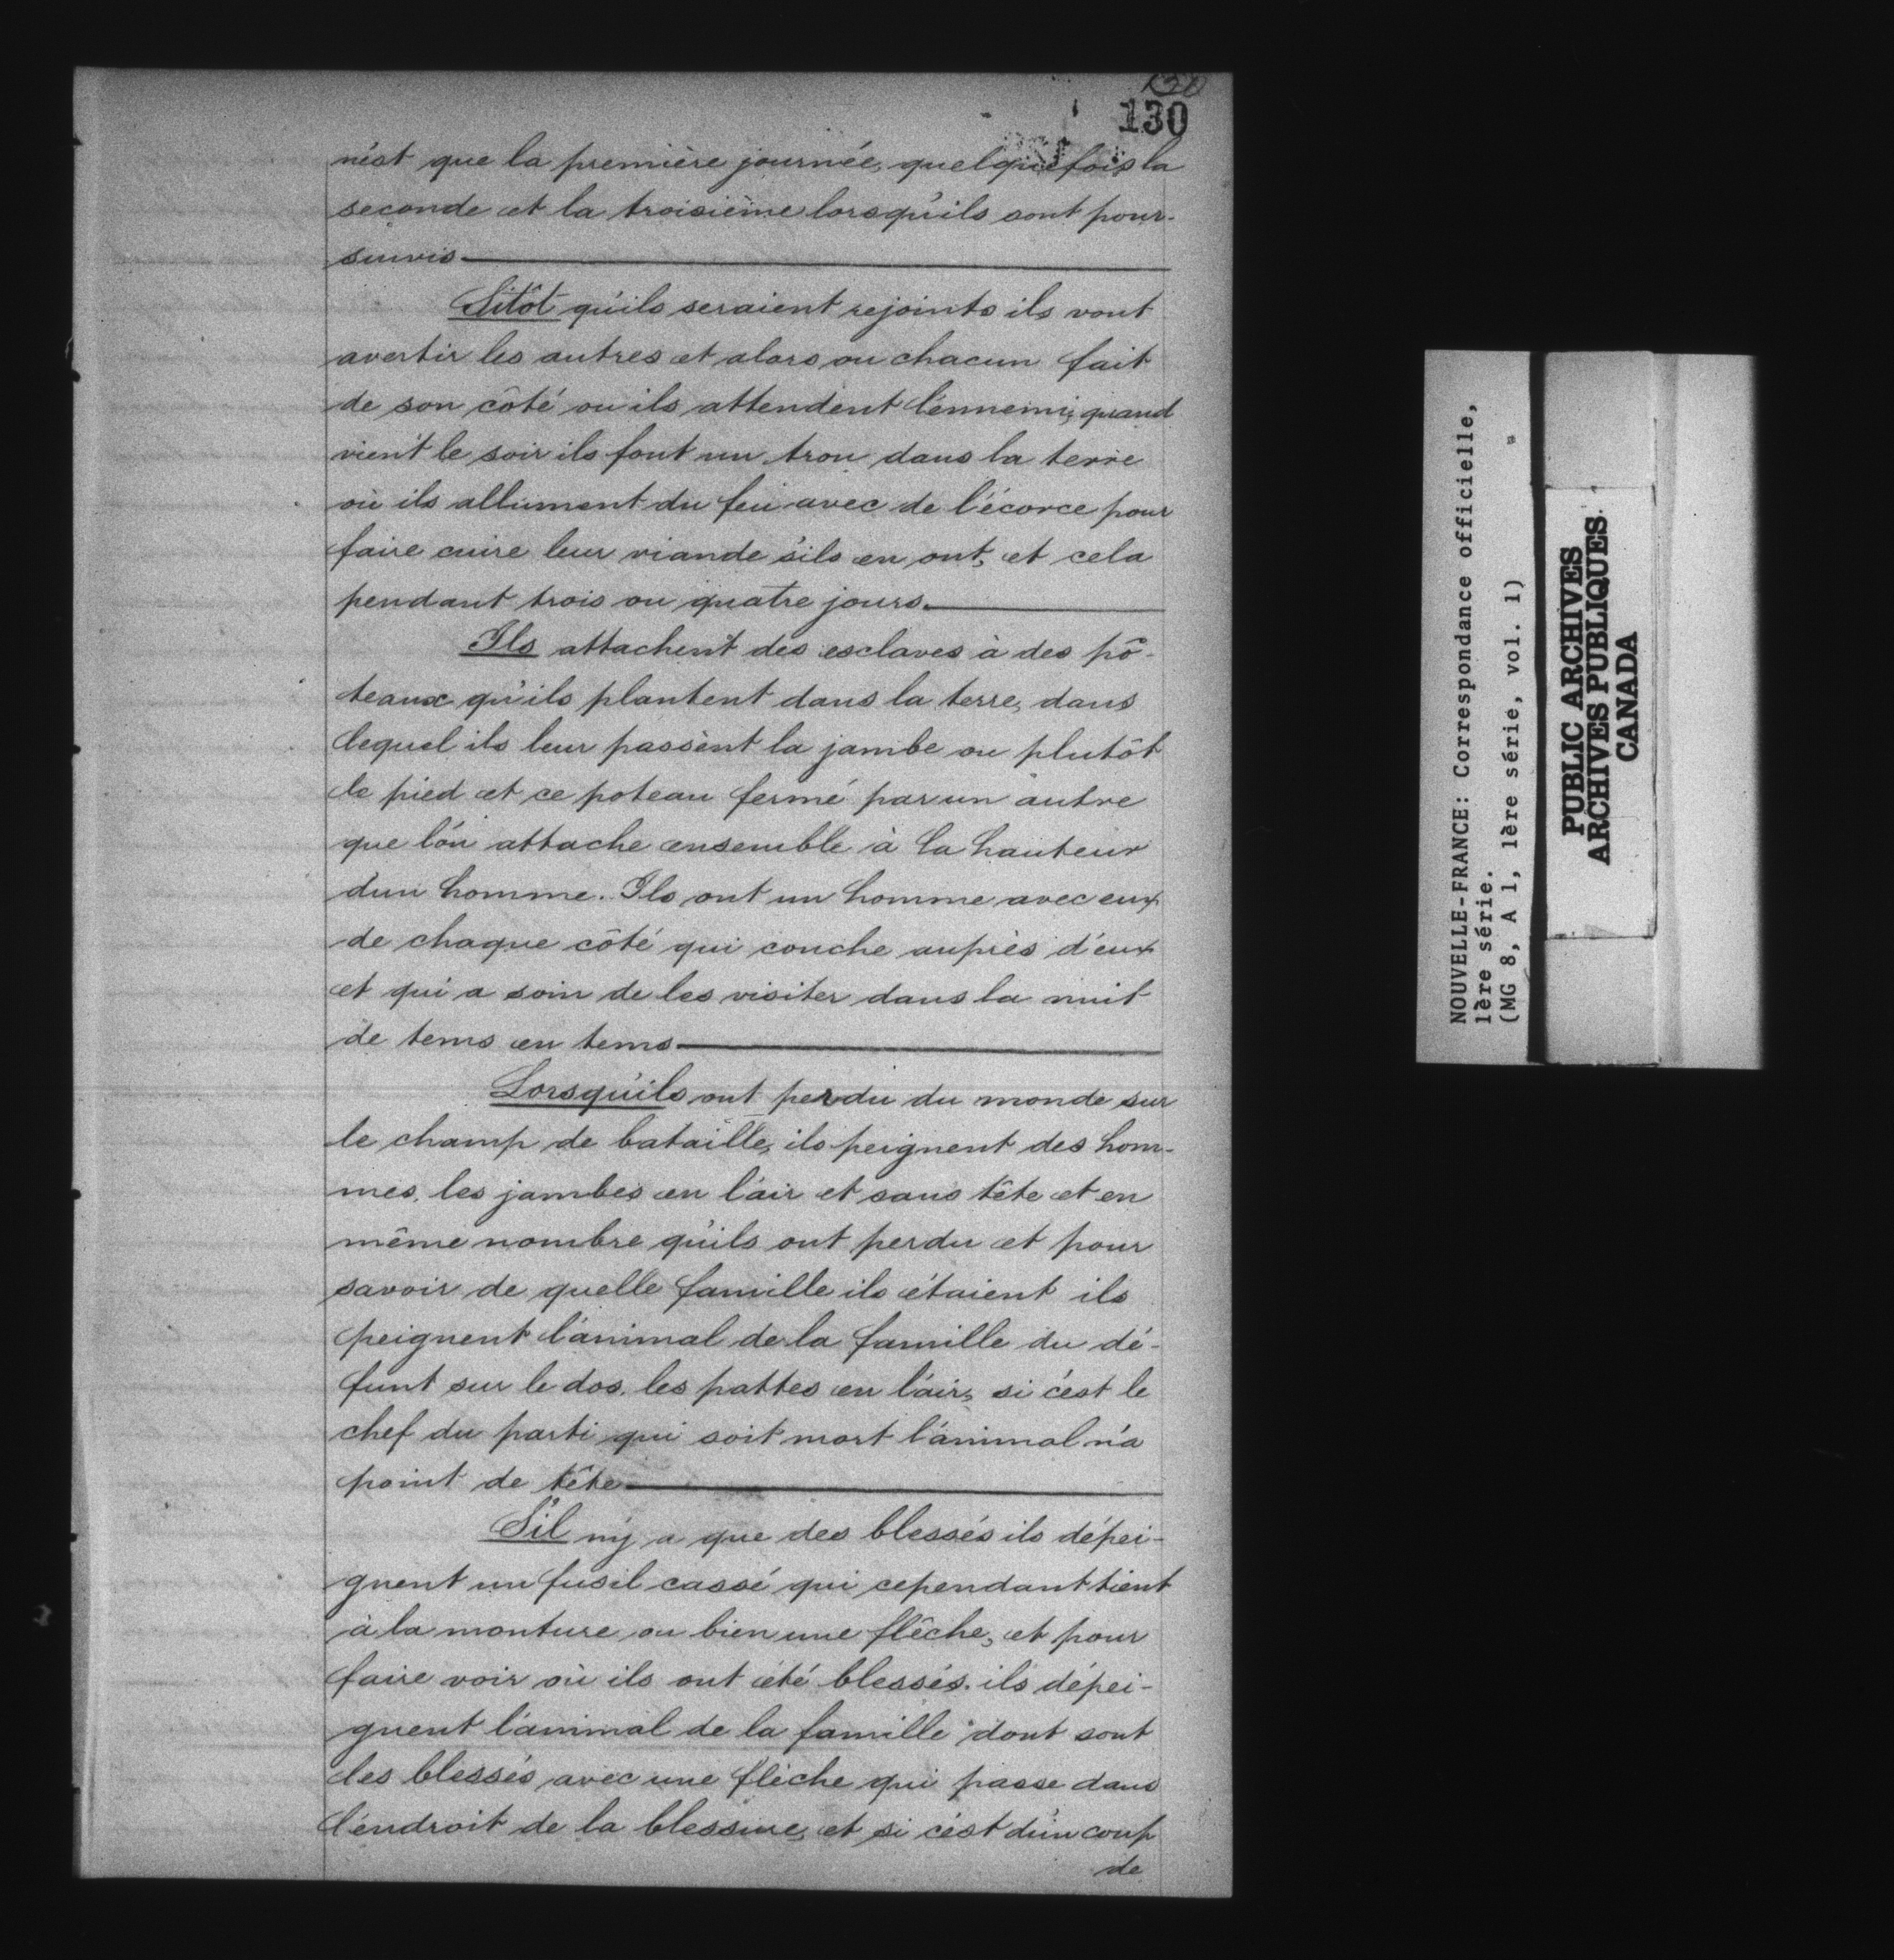 130
130
n'est que la première journée, quelquefois la
seconde et la troisième lorsqu'ils sont pour-
suivis
Sitôt qu'ils seraient rejoints ils vont
avertir les autres et alors ou chacun fait
de son côté ou ils attendent l'ennemi, quand
vient le soir ils font un trou dans la terre
où ils allument du feu avec de l'écorce pour
faire cuire leur viande s'ils en ont, et cela
pendant trois ou quatre jours.
Ils attachent des esclaves à des pô-
teaux qu'ils plantent dans la terre, dans
lequel ils leur passent la jambe ou plutôt
le pied et ce poteau fermé par un autre
que l'on attache ensemble à la hauteur
d'un homme. Ils ont un homme avec eux
de chaque côté qui couche auprès d'eux
et qui a soin de les visiter dans la nuit
de tems en tems
Lorsqu'ils ont perdu du monde sur
le champ de bataille, ils peignent des hom-
mes, les jambes en l'air et sans tête et en
même nombre qu'ils ont perdu et pour
savoir de quelle famille ils étaient ils
peignent l'animal de la famille du dé-
funt sur le dos, les pattes en l'air, si c'est le
chef du parti qui soit mort l'animal n'a
point de tête
S'il n'y a que des blessés ils dépei-
gnent un fusil cassé qui cependant tient
à la monture ou bien une flêche, et pour
faire voir où ils ont été blessés, ils dépei-
gnent l'animal de la famille dont sont
les blessés avec une flèche qui passe dans
l'endroit de la blessure, et si c'est d'un coup
de
NOUVELLE-FRANCE: Correspondance officielle,
1ère série.
(MG 8, A 1, 1ère série, vol. 1)
PUBLIC ARCHIVES
ARCHIVES PUBLIQUES
CANADA